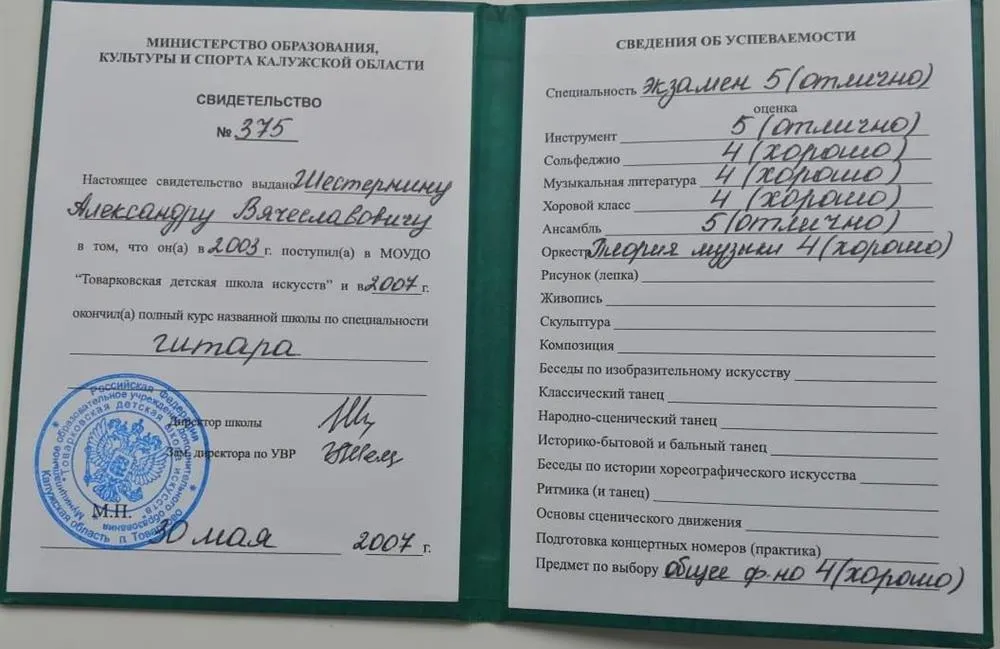 МИНИСТЕРСТВО ОБРАЗОВАНИЯ,
КУЛЬТУРЫ И СПОРТА КАЛУЖСКОЙ ОБЛАСТИ
СВИДЕТЕЛЬСТВО
№ 375
Настоящее свидетельство выдано Шестернину
Александру Вячеславовичу
в том, что он(а) в 2003 г. поступил(а) в МОУДО
"Товарковская детская школа искусств" и в 2007 г.
окончил(а) полный курс названной школы по специальности
гитара
Директор школы
Зам. директора по УВР
М.П.
30 мая 2007 г.
Российская Федерация
Муниципальное образовательное учреждение дополнительного образования
"Товарковская детская школа искусств"
Калужская область п. Товарково
СВЕДЕНИЯ ОБ УСПЕВАЕМОСТИ
Специальность экзамен 5 (отлично)
оценка
Инструмент 5 (отлично)
Сольфеджио 4 (хорошо)
Музыкальная литература 4 (хорошо)
Хоровой класс 4 (хорошо)
Ансамбль 5 (отлично)
Оркестр Теория музыки 4 (хорошо)
Рисунок (лепка)
Живопись
Скульптура
Композиция
Беседы по изобразительному искусству
Классический танец
Народно-сценический танец
Историко-бытовой и бальный танец
Беседы по истории хореографического искусства
Ритмика (и танец)
Основы сценического движения
Подготовка концертных номеров (практика)
Предмет по выбору общее ф-но 4 (хорошо)